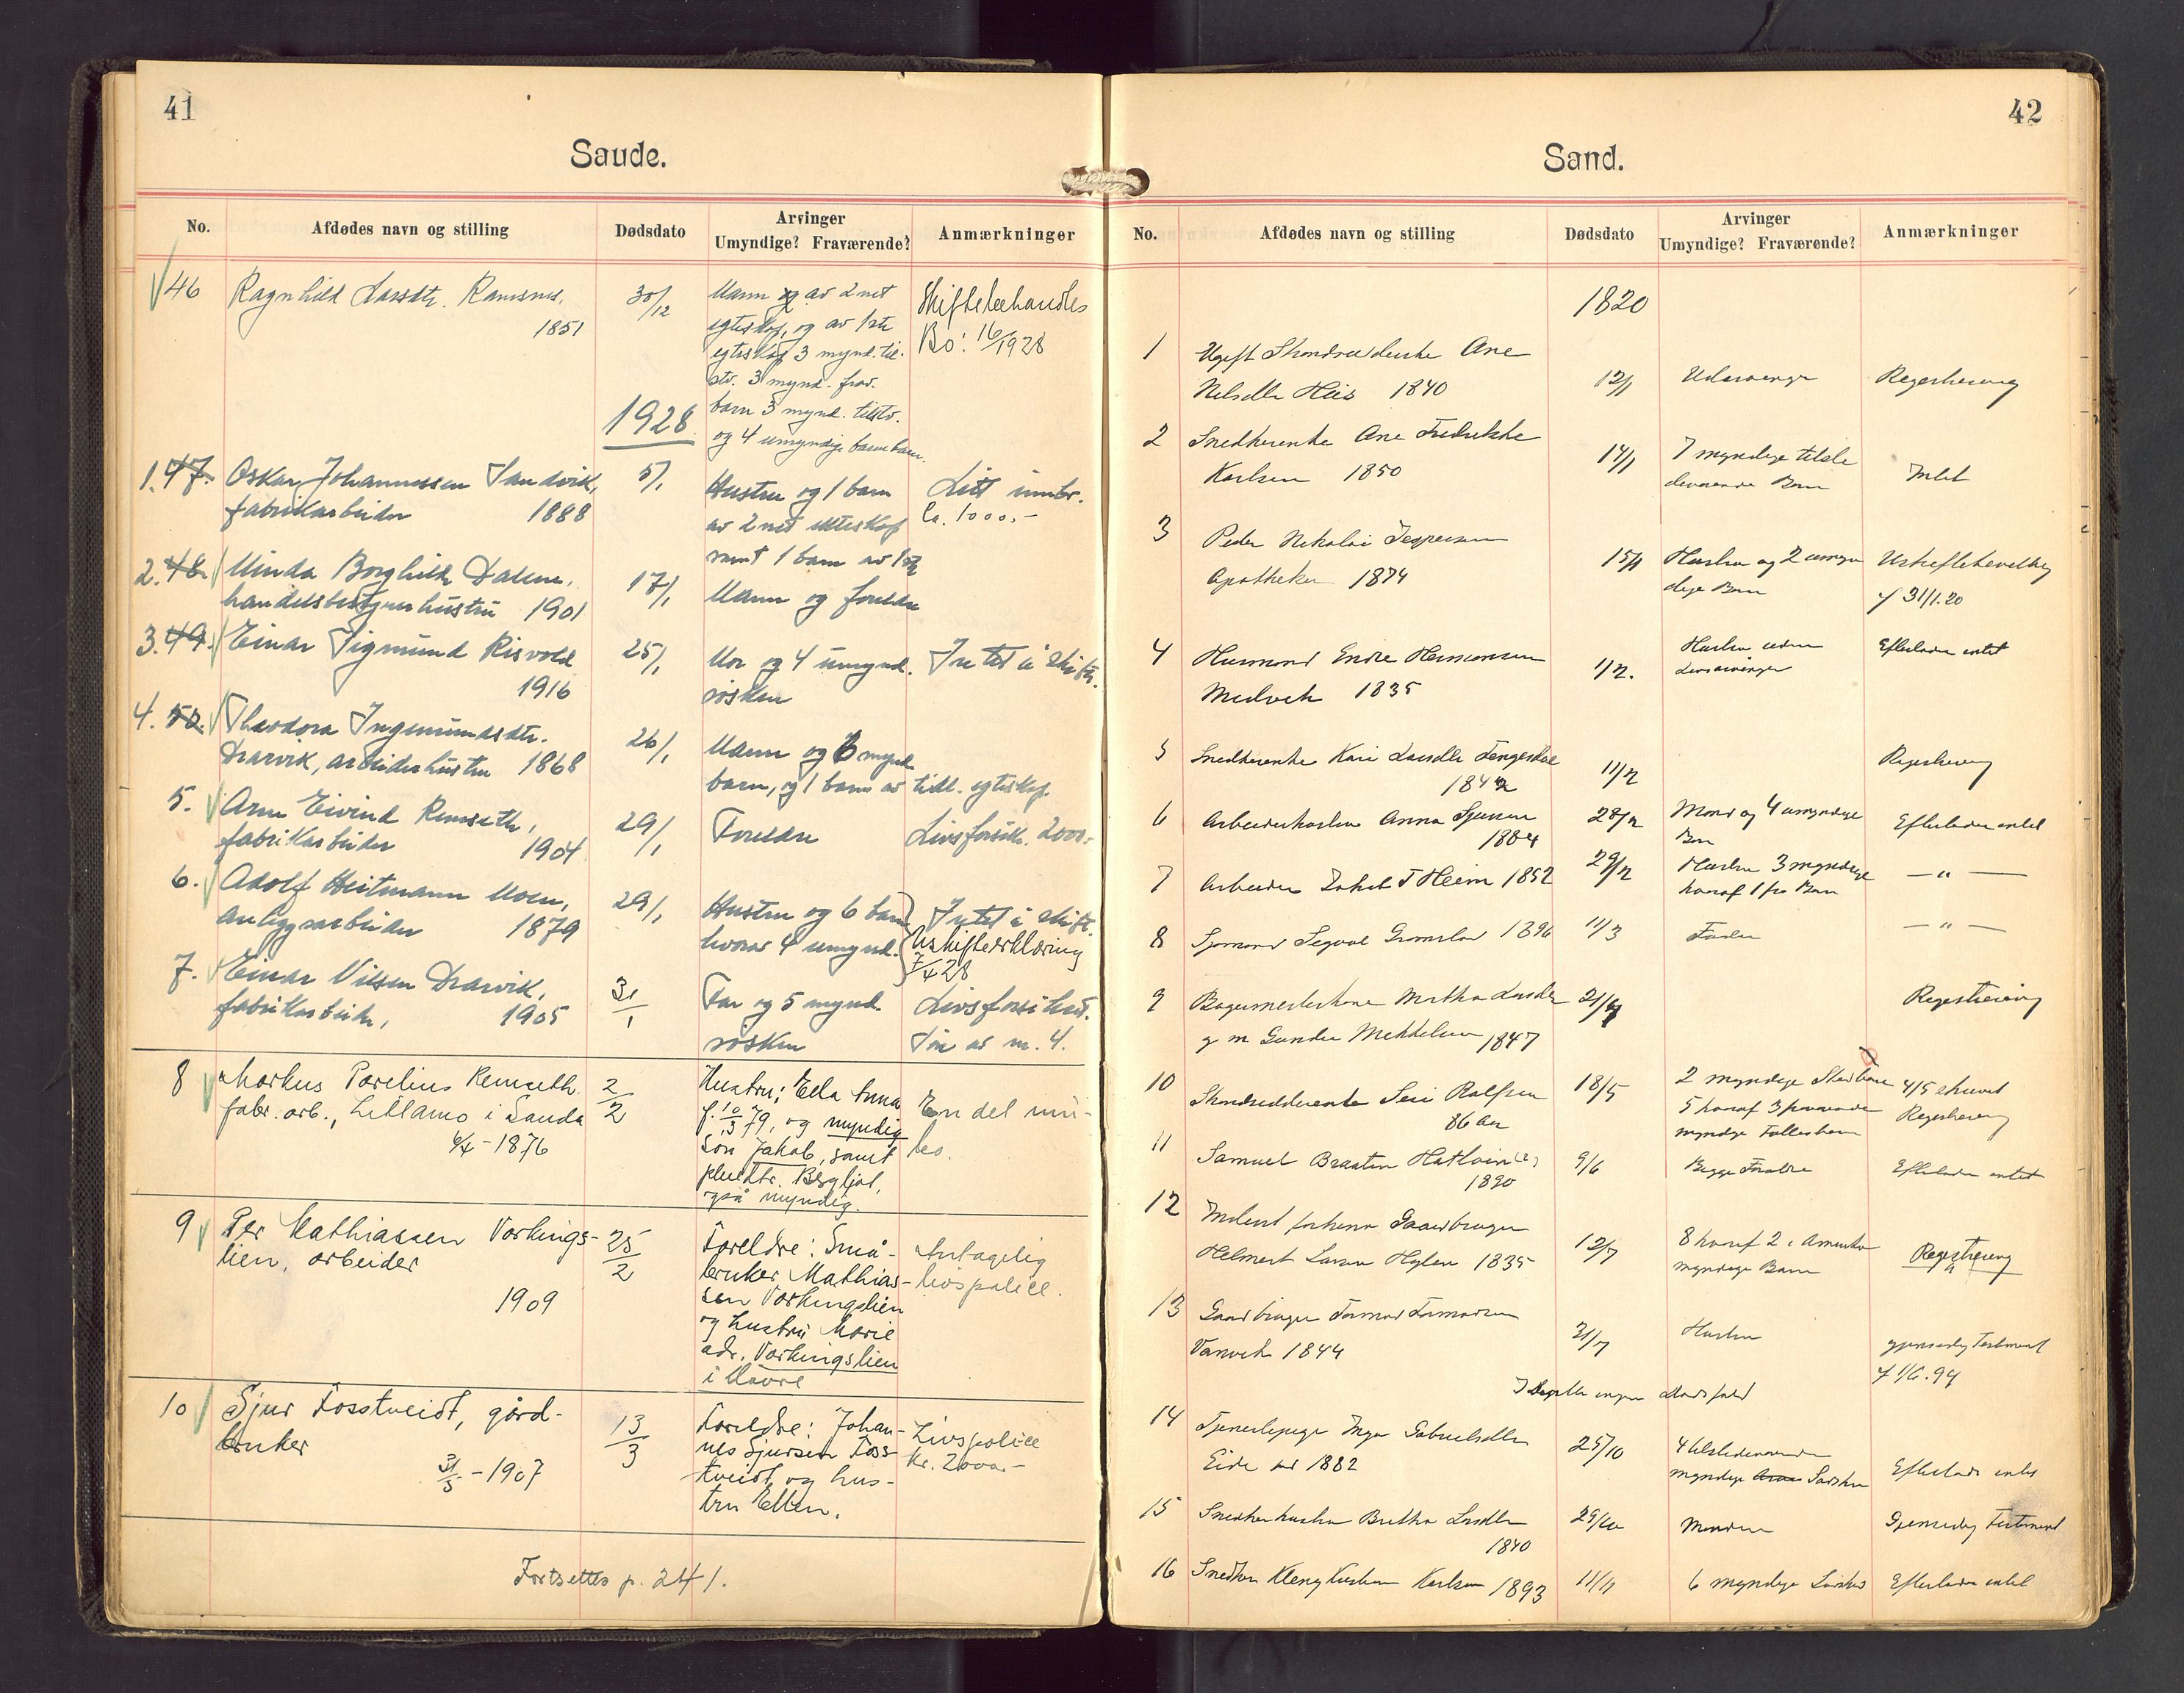 41
Saude.
No.
Afdødes navn og stilling
Dødsdato
Arvinger
Umyndige? Fraværende?
Anmærkninger
46
Ragnhild Larsdtr. Ramsnes.
1851
30/12
Mann og av 2net
egteskap, og av 1ste
egteskap 3 mynd. til-
stv. 3 mynd. frav.
barn 3 mynd. tilstv.
og 4 umyndige barnebarn.
Skiftebehandles
Bo: 16/1928
1928
1. 47.
Oskar Johannessen Sandvik,
fabrikarbeider 1888
5/1
Hustru og 1 barn
av 2net ekteskap
samt 1 barn av 1ste
Litt innbo.
Ca. 1000.-
2. 48.
Minda Borghild Dalen,
handelsbestyrerhustru 1901
17/1
Mann og foreldre
3. 49.
Einar Sigmund Risvold
1916
25/1
Mor og 4 umynd.
søsken
Intet å skifte.
4. 50.
Theodora Ingemundsdtr.
Drarvik, arbeiderhustru 1868
26/1
Mann og 6 mynd
barn, og 1 barn av tidl. egteskap.
5.
Arne Eivind Remseth,
fabrikarbeider 1904
29/1
Foreldre
Livsforsikr. 2000.-
6.
Adolf Heitmann Moen,
anleggsarbeider 1879
29/1
Hustru og 6 barn
hvorav 4 umynd.
Intet å skift.
Uskifteerklæring
7/4 28
7.
Einar Nilsen Drarvik,
fabrikarbeider, 1905
31/1
Far og 5 mynd.
søsken
Livsforsikret.
Søn av nr. 4.
8
Markus Parelius Remseth
fabr. arb., Lillamo i Sauda
6/4 - 1876
2/2
Hustru; Ella Anna
f. 10/3 79, og myndig
søn Jakob, samt
pleiedtr. Bergljot,
også myndig.
En del inn-
bo.
9
Per Mathiassen Vorkings-
lien, arbeider
1909
25/2
Foreldre: Små-
bruker Mathias-
sen Vorkingslien
og hustru Marie
adr. Vorkingslien
i
Antagelig
livspolice.
10
Sjur Fosstveidt, gård-
bruker
31/5 - 1907
13/3
Foreldre: Johan-
nes Sjursen Foss-
tveidt og hus-
tru Ellen.
Livspolice
kr. 2000.-
Fortsettes p. 241.
42
Sand.
No.
Afdødes navn og stilling
Dødsdato
Arvinger
Umyndige? Fraværende?
Anmærkninger
1820
1
Ugift Ane
1840
12/1
Udarvinger
Registrering
2
Snedkerenke Ane Fredrikke
Karlsen 1850
14/1
7 myndige tilste
deværende Barn
Intet
3
Peder Nikolai Jespersen
Apotheker 1874
15/1
Hustru og 2 umyn
dige Barn
Uskiftebevilling
f 31/1.20
4
Husmand Endre Hermansen
1835
1/2.
Hustru uden
Livsarvinger
Efterlader intet
5
Snedkerenke Kari Larsdtr
1842
11/2
Registrering
6
Arbeiderhustru Anna
1884
28/2
Mand og 4 umyndige
Barn
Efterlader intet
7
Arbeider T Heim 1852
29/2
Hustru 3 myndige
hvoraf 1 fra Barn
— " —
8
Sjømand 1896
11/3
Fader
— " —
9
Martha Larsdtr
g m Gunder 1847
21/4
Registrering
10
Rolfsen
86 Aar
18/5
2 myndige
5 hvoraf 3
myndige
4/5 skrevet
Registrering
11
Samuel Braaten
1890
9/6
Begge Forældre
Efterlader intet
12
Inderst forhenv Gaardbruger
Helmert Larsen Hylen 1835
12/7
8 hvoraf 2 i Amerika
myndige Barn
Registrering
13
Gaardbruger
1844
21/7
Hustru
gjensidig Testament
f 1/6.94
ingen Dødsfald
14
Tjenestepige Inga Gabrielsdtr
Eide 1882
25/10
4 tilstedeværende
myndige Søsken
Efterlader intet
15
Snedkerhustru Bertha Larsdtr
1840
29/10
Manden
Gjensidig Testament
16
Snedker Karlsen 1893
11/11
6 myndige Søsken
Efterlader intet